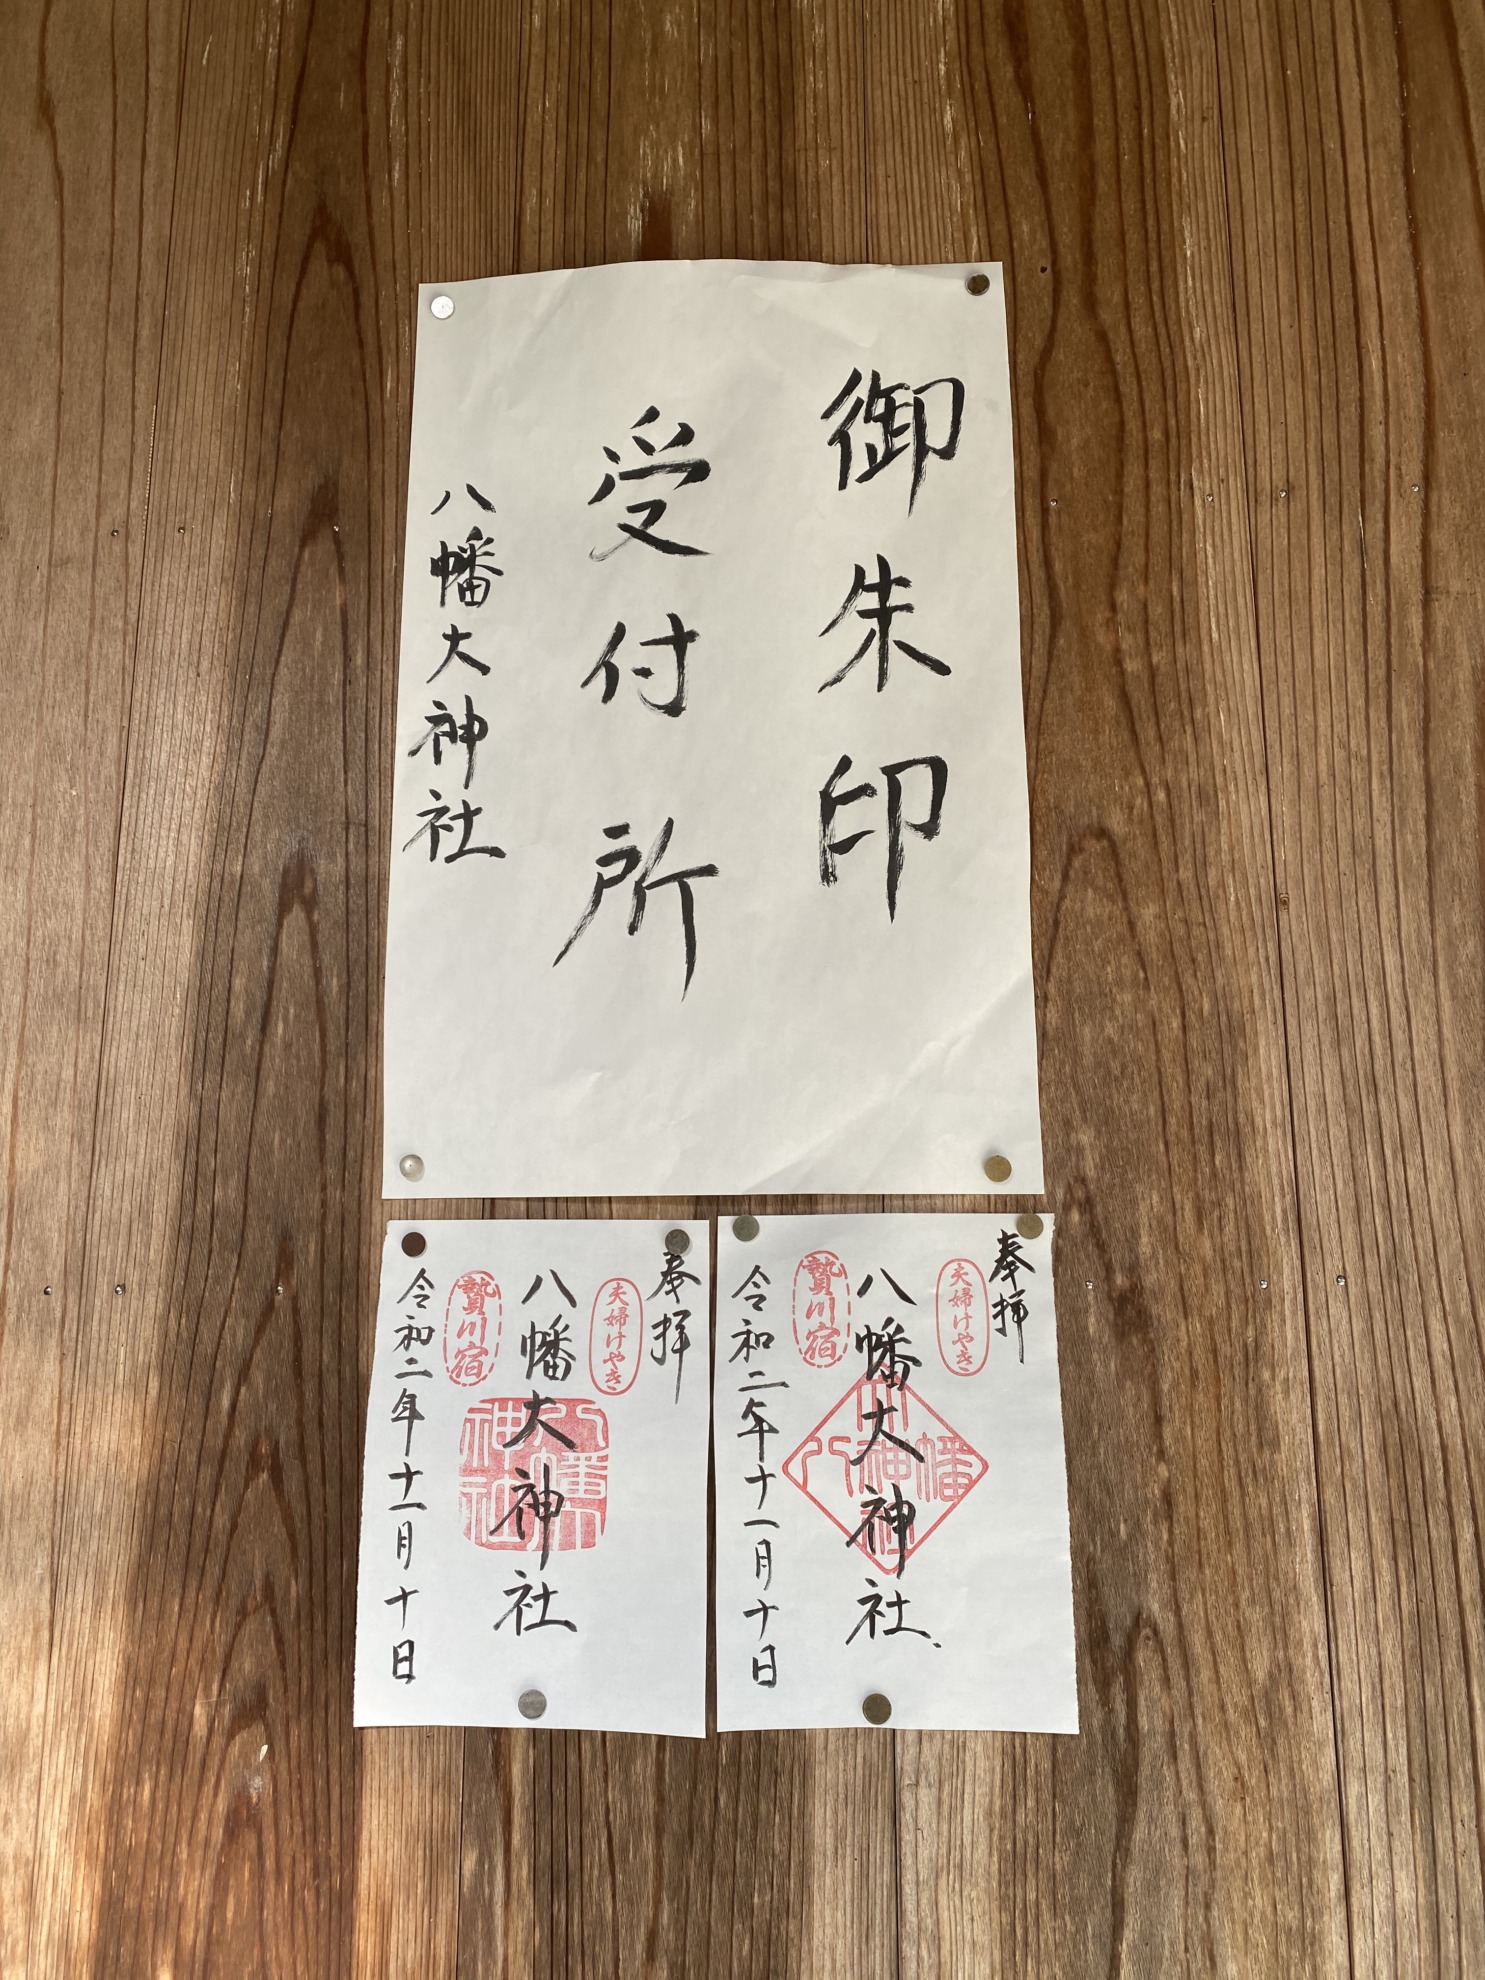 御朱印
受付所
八幡大神社
奉拝
夫婦けやき
八幡大神社
八幡大神社
贄川宿
令和二年十一月十日
奉拝
夫婦けやき
八幡大神社
八幡大神社
贄川宿
令和二年十一月十日